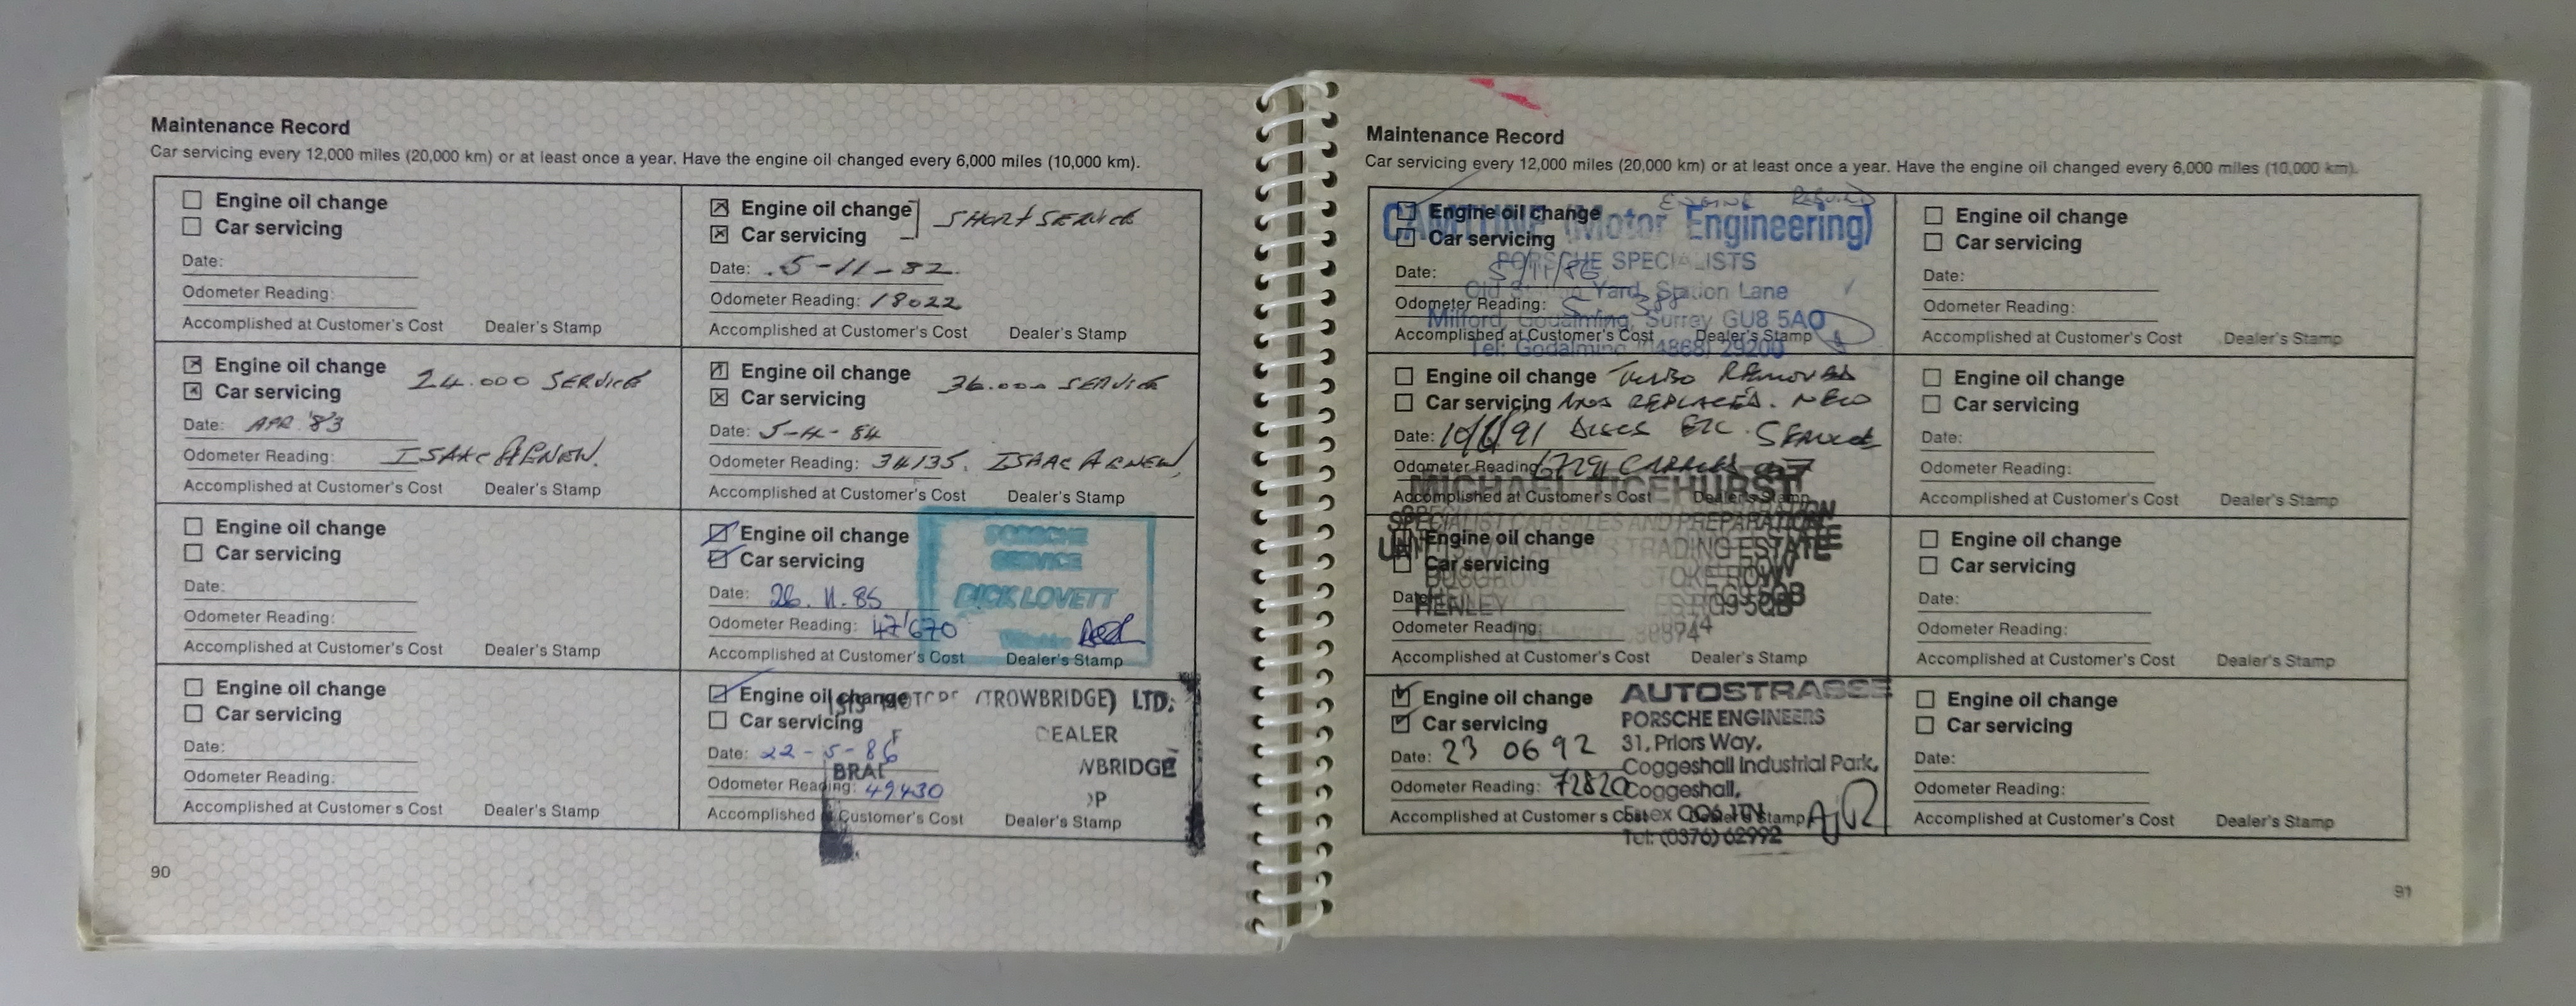 Maintenance Record
Car servicing every 12,000 miles (20,000 km) or at least once a year. Have the engine oil changed every 6,000 miles (10,000 km).
Engine oil change
Car servicing
Date:
Odometer Reading:
Accomplished at Customer's Cost Dealer's Stamp
Engine oil change SHORT SERVICE
Car servicing
Date: 5-11-82
Odometer Reading: 18022
Accomplished at Customer's Cost Dealer's Stamp
Engine oil change 24.000 SERVICE
Car servicing
Date: APR '83
Odometer Reading: ISAAC AGNEW.
Accomplished at Customer's Cost Dealer's Stamp
Engine oil change 36.000 SERVICE
Car servicing
Date: 5-4-84
Odometer Reading: 34135. ISAAC AGNEW
Accomplished at Customer's Cost Dealer's Stamp
Engine oil change
Car servicing
Date:
Odometer Reading:
Accomplished at Customer's Cost Dealer's Stamp
Engine oil change
Car servicing
Date: 26.11.85
Odometer Reading: 47'670
Accomplished at Customer's Cost Dealer's Stamp
PORSCHE
SERVICE
DICK LOVETT
Engine oil change
Car servicing
Date:
Odometer Reading:
Accomplished at Customer's Cost Dealer's Stamp
Engine oil change
Car servicing
Date: 22-5-86
Odometer Reading: 49430
Accomplished Customer's Cost Dealer's Stamp
MOTORS (TROWBRIDGE) LTD.
DEALER
90
Maintenance Record
Car servicing every 12,000 miles (20,000 km) or at least once a year. Have the engine oil changed every 6,000 miles (10,000 km).
Engine oil change ENGINE REBUILD
Car servicing
Date: 5/11/86
Odometer Reading:
Accomplished at Customer's Cost Dealer's Stamp
(Motor Engineering)
PORSCHE SPECIALISTS
Old Station Yard, Station Lane
Milford, Godalming, Surrey GU8 5AQ
Tel: Godalming (04868) 29200
Engine oil change
Car servicing
Date:
Odometer Reading:
Accomplished at Customer's Cost Dealer's Stamp
Engine oil change TURBO REMOVED
Car servicing AND REPLACED. NEW
Date: DISCS ETC. SERVICE
Odometer Reading
Accomplished at Customer's Cost Dealer's Stamp
MICHAEL
SPECIALIST CAR SALES AND PREPARATION
TRADING ESTATE
STOKE ROW
HENLEY RG9 5QB
Engine oil change
Car servicing
Date:
Odometer Reading:
Accomplished at Customer's Cost Dealer's Stamp
Engine oil change
Car servicing
Date
Odometer Reading
Accomplished at Customer's Cost Dealer's Stamp
Engine oil change
Car servicing
Date:
Odometer Reading:
Accomplished at Customer's Cost Dealer's Stamp
Engine oil change
Car servicing
Date: 23 06 92
Odometer Reading: 72820
Accomplished at Customer s Cost Dealer's Stamp
AUTOSTRASSE
PORSCHE ENGINEERS
31, Priors Way,
Coggeshall Industrial Park,
Coggeshall,
Essex CO6 1TN
Tel: (0376) 62992
Engine oil change
Car servicing
Date:
Odometer Reading:
Accomplished at Customer's Cost Dealer's Stamp
91